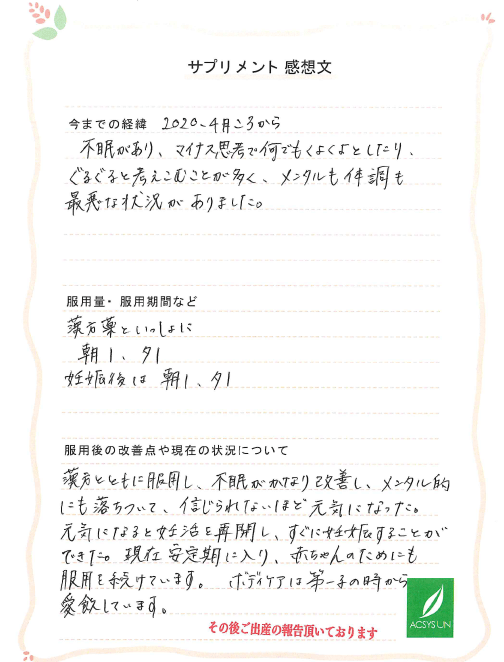 サプリメント 感想文
今までの経緯 2020、4月ころから
不眠があり、マイナス思考で何でもくよくよとしたり、
ぐるぐると考えこむことが多く、メンタルも体調も
最悪な状況がありました。
服用量・服用期間など
漢方薬といっしょに
朝1、夕1
妊娠後は 朝1、夕1
服用後の改善点や現在の状況について
漢方とともに服用し、不眠がかなり改善し、メンタル的
にも落ちついて、信じられないほど元気になった。
元気になると妊活を再開し、すぐに妊娠することが
できた。現在安定期に入り、赤ちゃんのためにも
服用を続けています。 ボディケアは第一子の時から
愛飲しています。
その後ご出産の報告頂いております
ACSYSUN